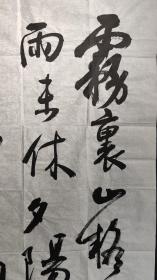 霧裏山
雨未休夕陽